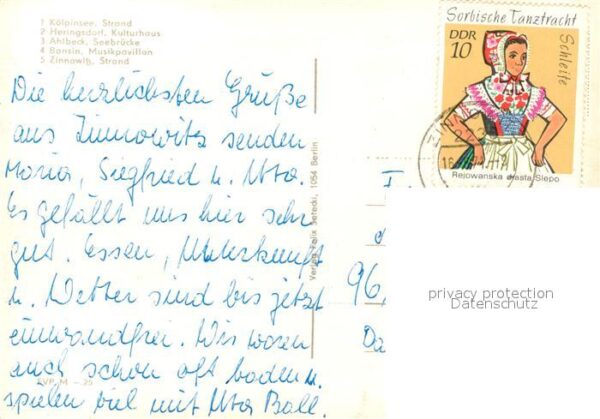 1 Kölpinsee, Strand
2 Heringsdorf, Kulturhaus
3 Ahlbeck, Seebrücke
4 Bansin, Musikpavillon
5 Zinnowitz, Strand
Die herzlichsten Grüße
aus Zinnowitz senden
Maria, Siegfried u. Uta.
Es gefällt uns hier sehr
gut. Essen, Unterkunft
u. Wetter sind bis jetzt
einwandfrei. Wir waren
auch schon oft baden u.
spielen viel mit Uta Ball.
EVP M – 25
Verlag Felix Setecki, 1054 Berlin
Sorbische Tanztracht
DDR
10
Schleife
Rejowanska drasta Slepo
ZINNO
96,
Da
privacy protection
Datenschutz